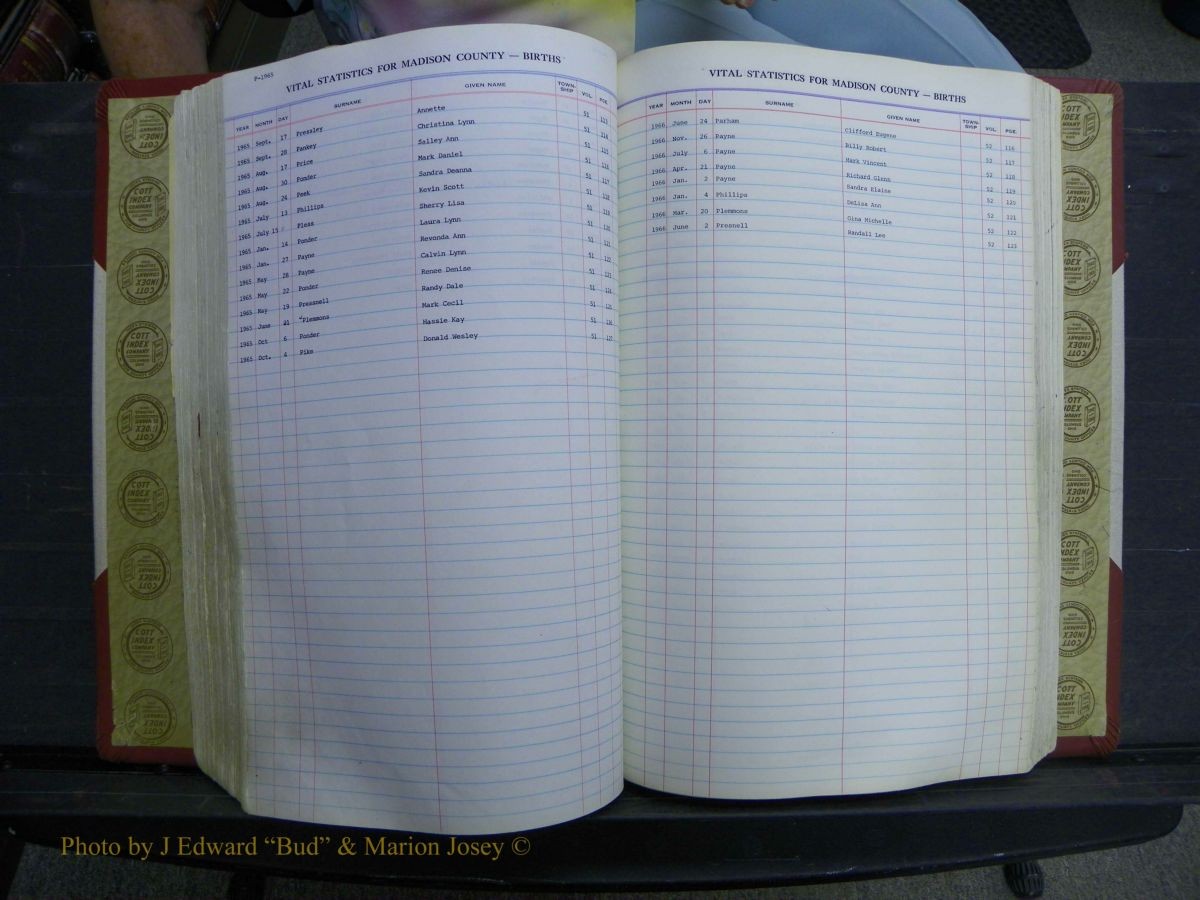 P-1965
VITAL STATISTICS FOR MADISON COUNTY — BIRTHS
YEAR MONTH DAY SURNAME GIVEN NAME TOWN-SHIP VOL. PGE.
1965 Sept. 17 Pressley Annette 51 113
1965 Sept. 28 Pankey Christina Lynn 51 114
1965 Aug. 17 Price Salley Ann 51 115
1965 Aug. 30 Ponder Mark Daniel 51 116
1965 Aug. 24 Peek Sandra Deanna 51 117
1965 July 13 Phillips Kevin Scott 51 118
1965 July 15 Pless Sherry Lisa 51 119
1965 Jan. 14 Ponder Laura Lynn 51 120
1965 Jan. 27 Payne Revonda Ann 51 121
1965 May 28 Payne Calvin Lynn 51 122
1965 May 22 Ponder Renee Denise 51 123
1965 May 19 Pressnell Randy Dale 51 124
1965 June 21 Plemmons Mark Cecil 51 125
1965 Oct 6 Ponder Hassie Kay 51 126
1965 Oct. 4 Pike Donald Wesley 51 127
VITAL STATISTICS FOR MADISON COUNTY — BIRTHS
YEAR MONTH DAY SURNAME GIVEN NAME TOWN-SHIP VOL. PGE.
1966 June 24 Parham Clifford Eugene 52 116
1966 Nov. 26 Payne Billy Robert 52 117
1966 July 6 Payne Mark Vincent 52 118
1966 Apr. 21 Payne Richard Glenn 52 119
1966 Jan. 2 Payne Sandra Elaine 52 120
1966 Jan. 4 Phillips DeLisa Ann 52 121
1966 Mar. 20 Plemmons Gina Michelle 52 122
1966 June 2 Presnell Randall Lee 52 123
COTT INDEX COMPANY
Photo by J Edward “Bud” & Marion Josey ©